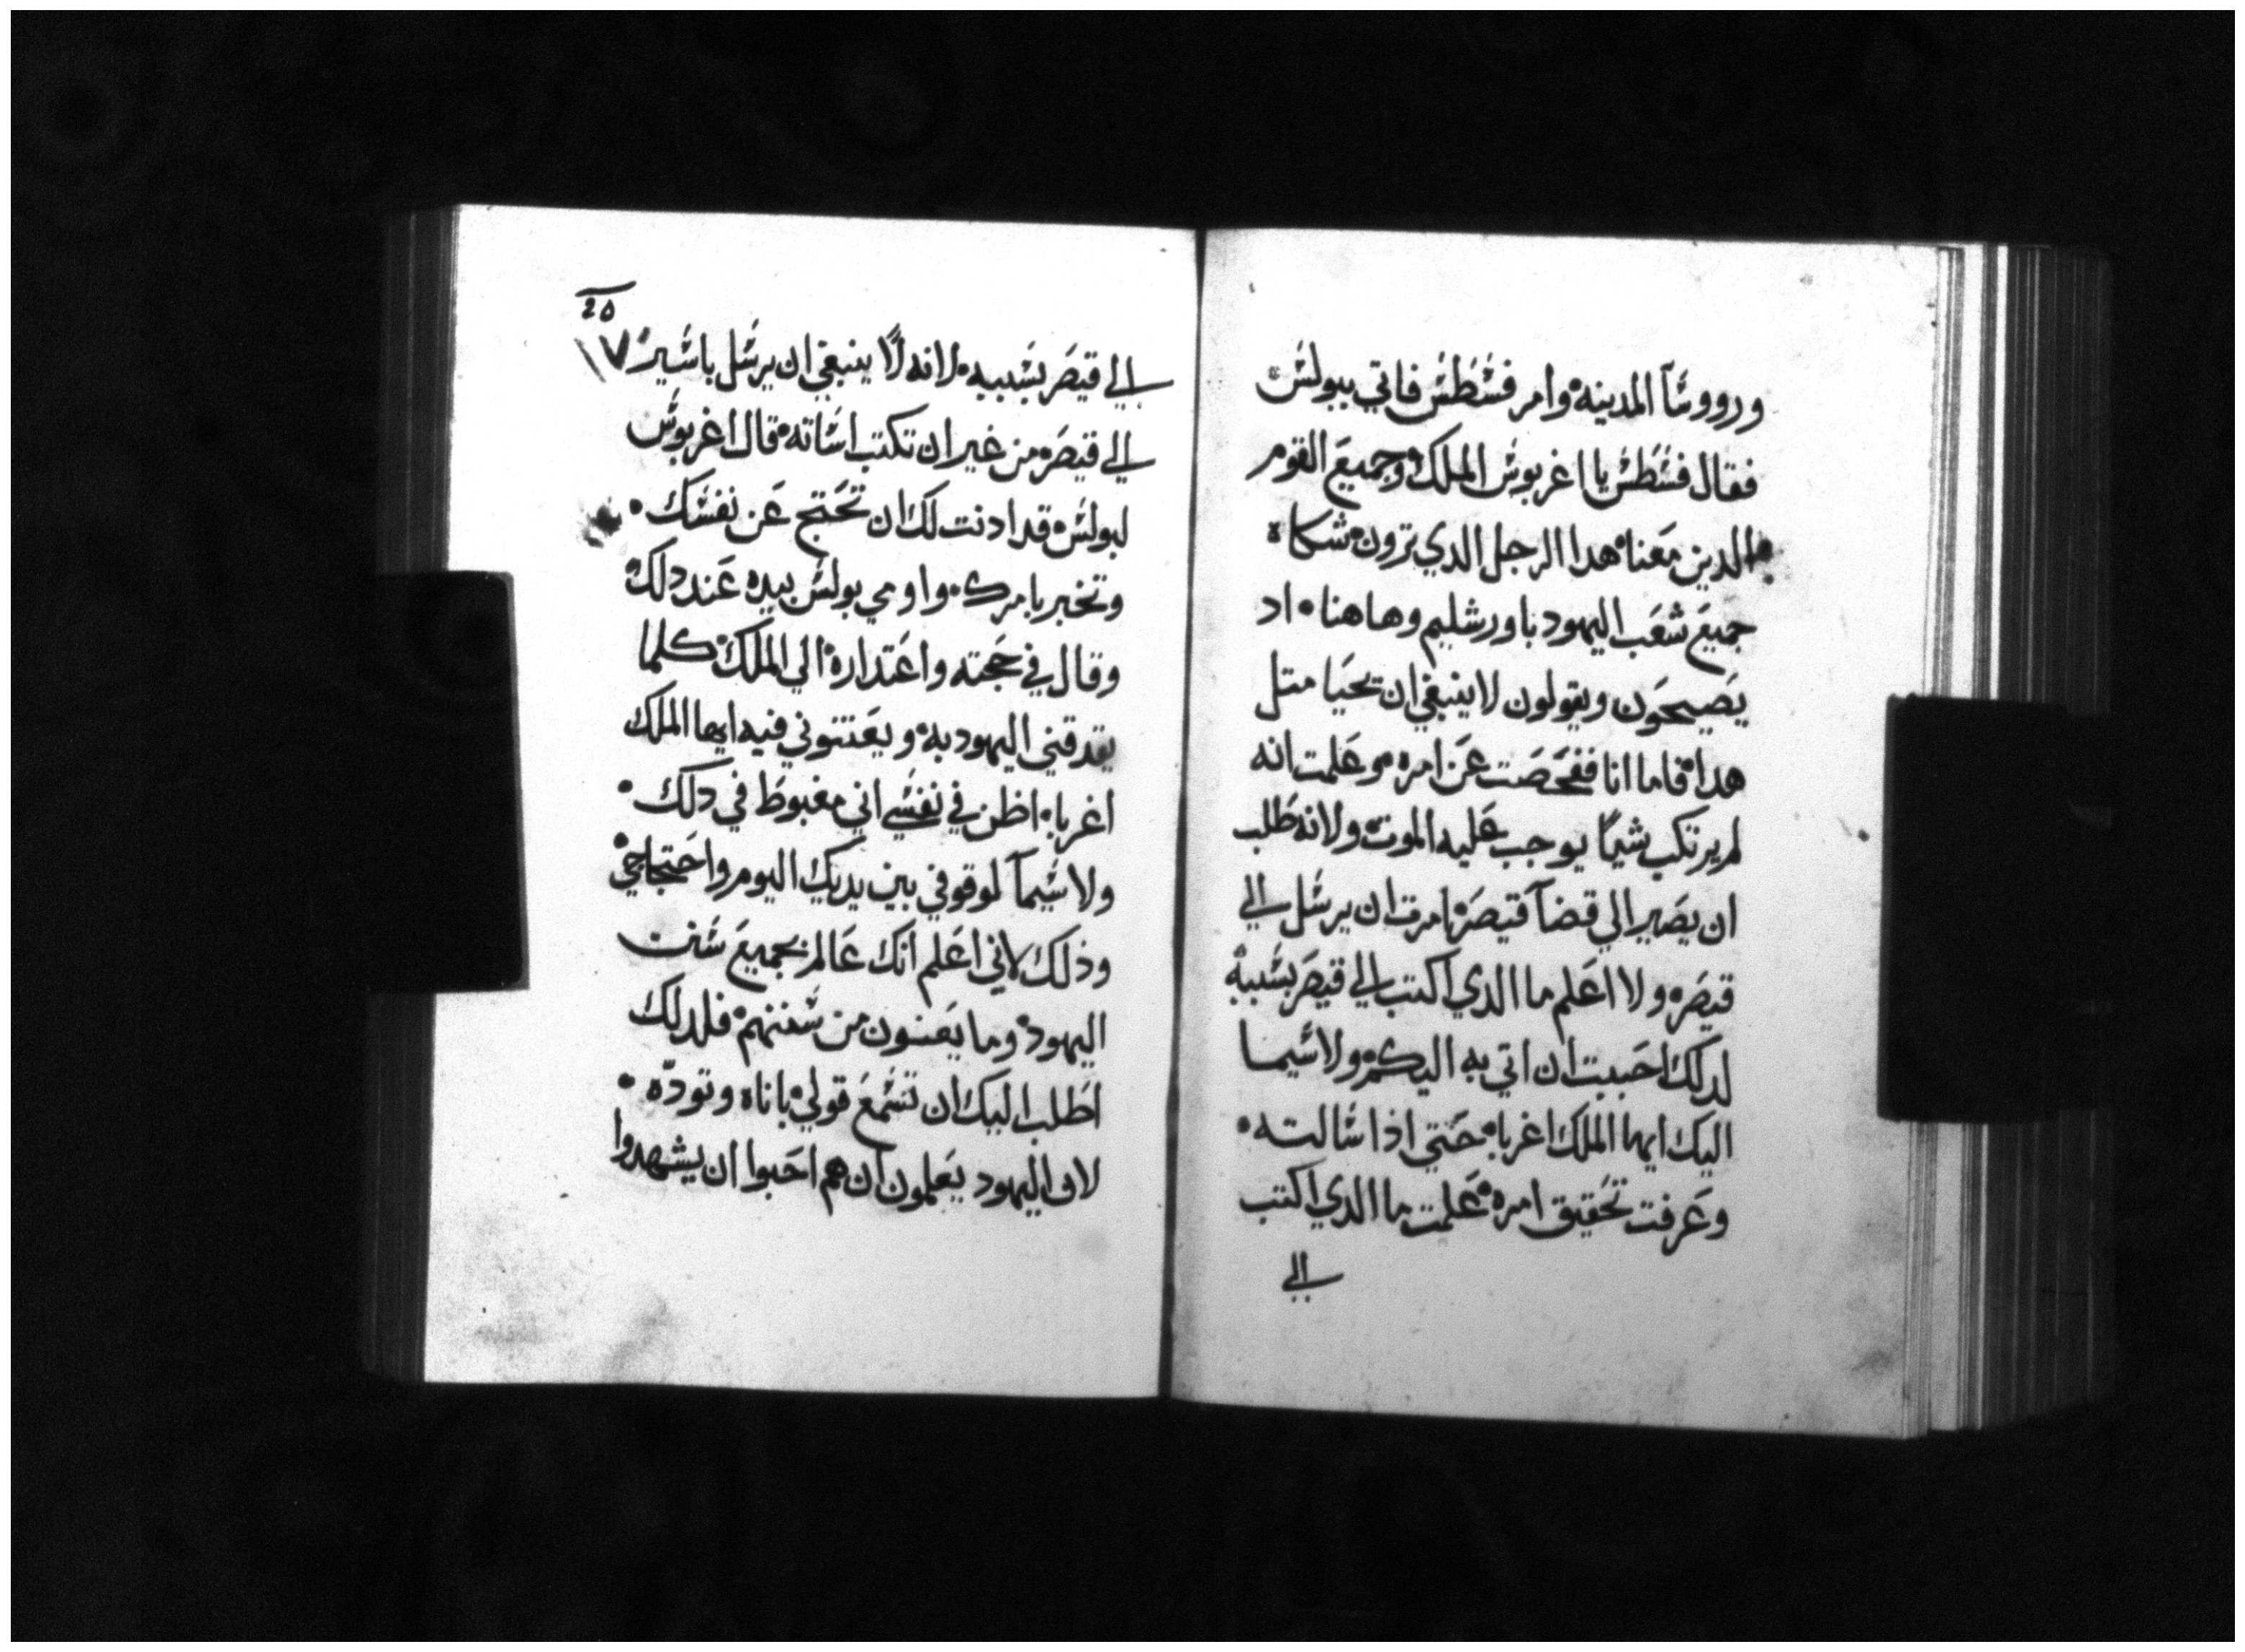 ورووسآ المدينه وامر فسطس فاتي ببولس
فقال فسطس يا اغربوس الملك وجميع القوم
الدين معنا هدا الرجل الدي ترون شكاه
جميع شعب اليهود باورشليم وهاهنا اد
يصيحون ويقولون لا ينبغي ان تحيا متل
هدا فاما انا ففحصت عن امره وعلمت انه
لم يرتكب شيًا يوجب عليه الموت ولانه طلب
ان يصير الي قضآ قيصر امرت ان يرسل الي
قيصر ولا اعلم ما الدي اكتب الي قيصر بسببه
لدلك احببت ان اتي به اليكم ولا سيما
اليك ايها الملك اغربا حتي اذا سالته
وعرفت تحقيق امره علمت ما الدي اكتب
الي
25
الي قيصر بسببه لانه لا ينبغي ان يرسل باسير ١٧
الي قيصر من غير ان تكتب اساته قال اغربوس
لبولس قد ادنت لك ان تحتج عن نفسك
وتخبر بامرك واومي بولس بيده عند دلك
وقال في حجته واعتداره الي الملك كلما
يقدقني اليهود به ويعنتوني فيه ايها الملك
اغربا اظن في نفسي اني مغبوط في دلك
ولا سيمآ لموقوفي بين يديك اليوم واحتجاجي
وذلك لاني اعلم انك عالم بجميع سنن
اليهود وما يعنون من سننهم فلدلك
اطلب اليك ان تسمع قولي باناه وتودّه
لان اليهود يعلمون ان هم احبوا ان يشهدوا